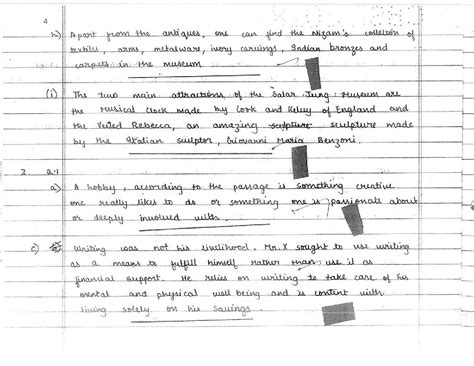 4
h) Apart from the antiques, one can find the Nizam's collection of
textiles, arms, metalware, ivory carvings, Indian bronzes and
carpets in the museum
(i) The two main attractions of the Salar Jung Museum are
the Musical Clock made by Cook and Kelvey of England and
the Veiled Rebecca, an amazing sculpture sculpture made
by the Italian sculptor, Giovanni Maria Benzoni.
2 2.1
a) A hobby, according to the passage is something creative
one really likes to do or something one is passionate about
or deeply involved with.
c) Writing was not his livelihood. Mr. X sought to use writing
as a means to fulfill himself rather than use it as
financial support. He relies on writing to take care of his
mental and physical well being and is content with
living solely on his savings